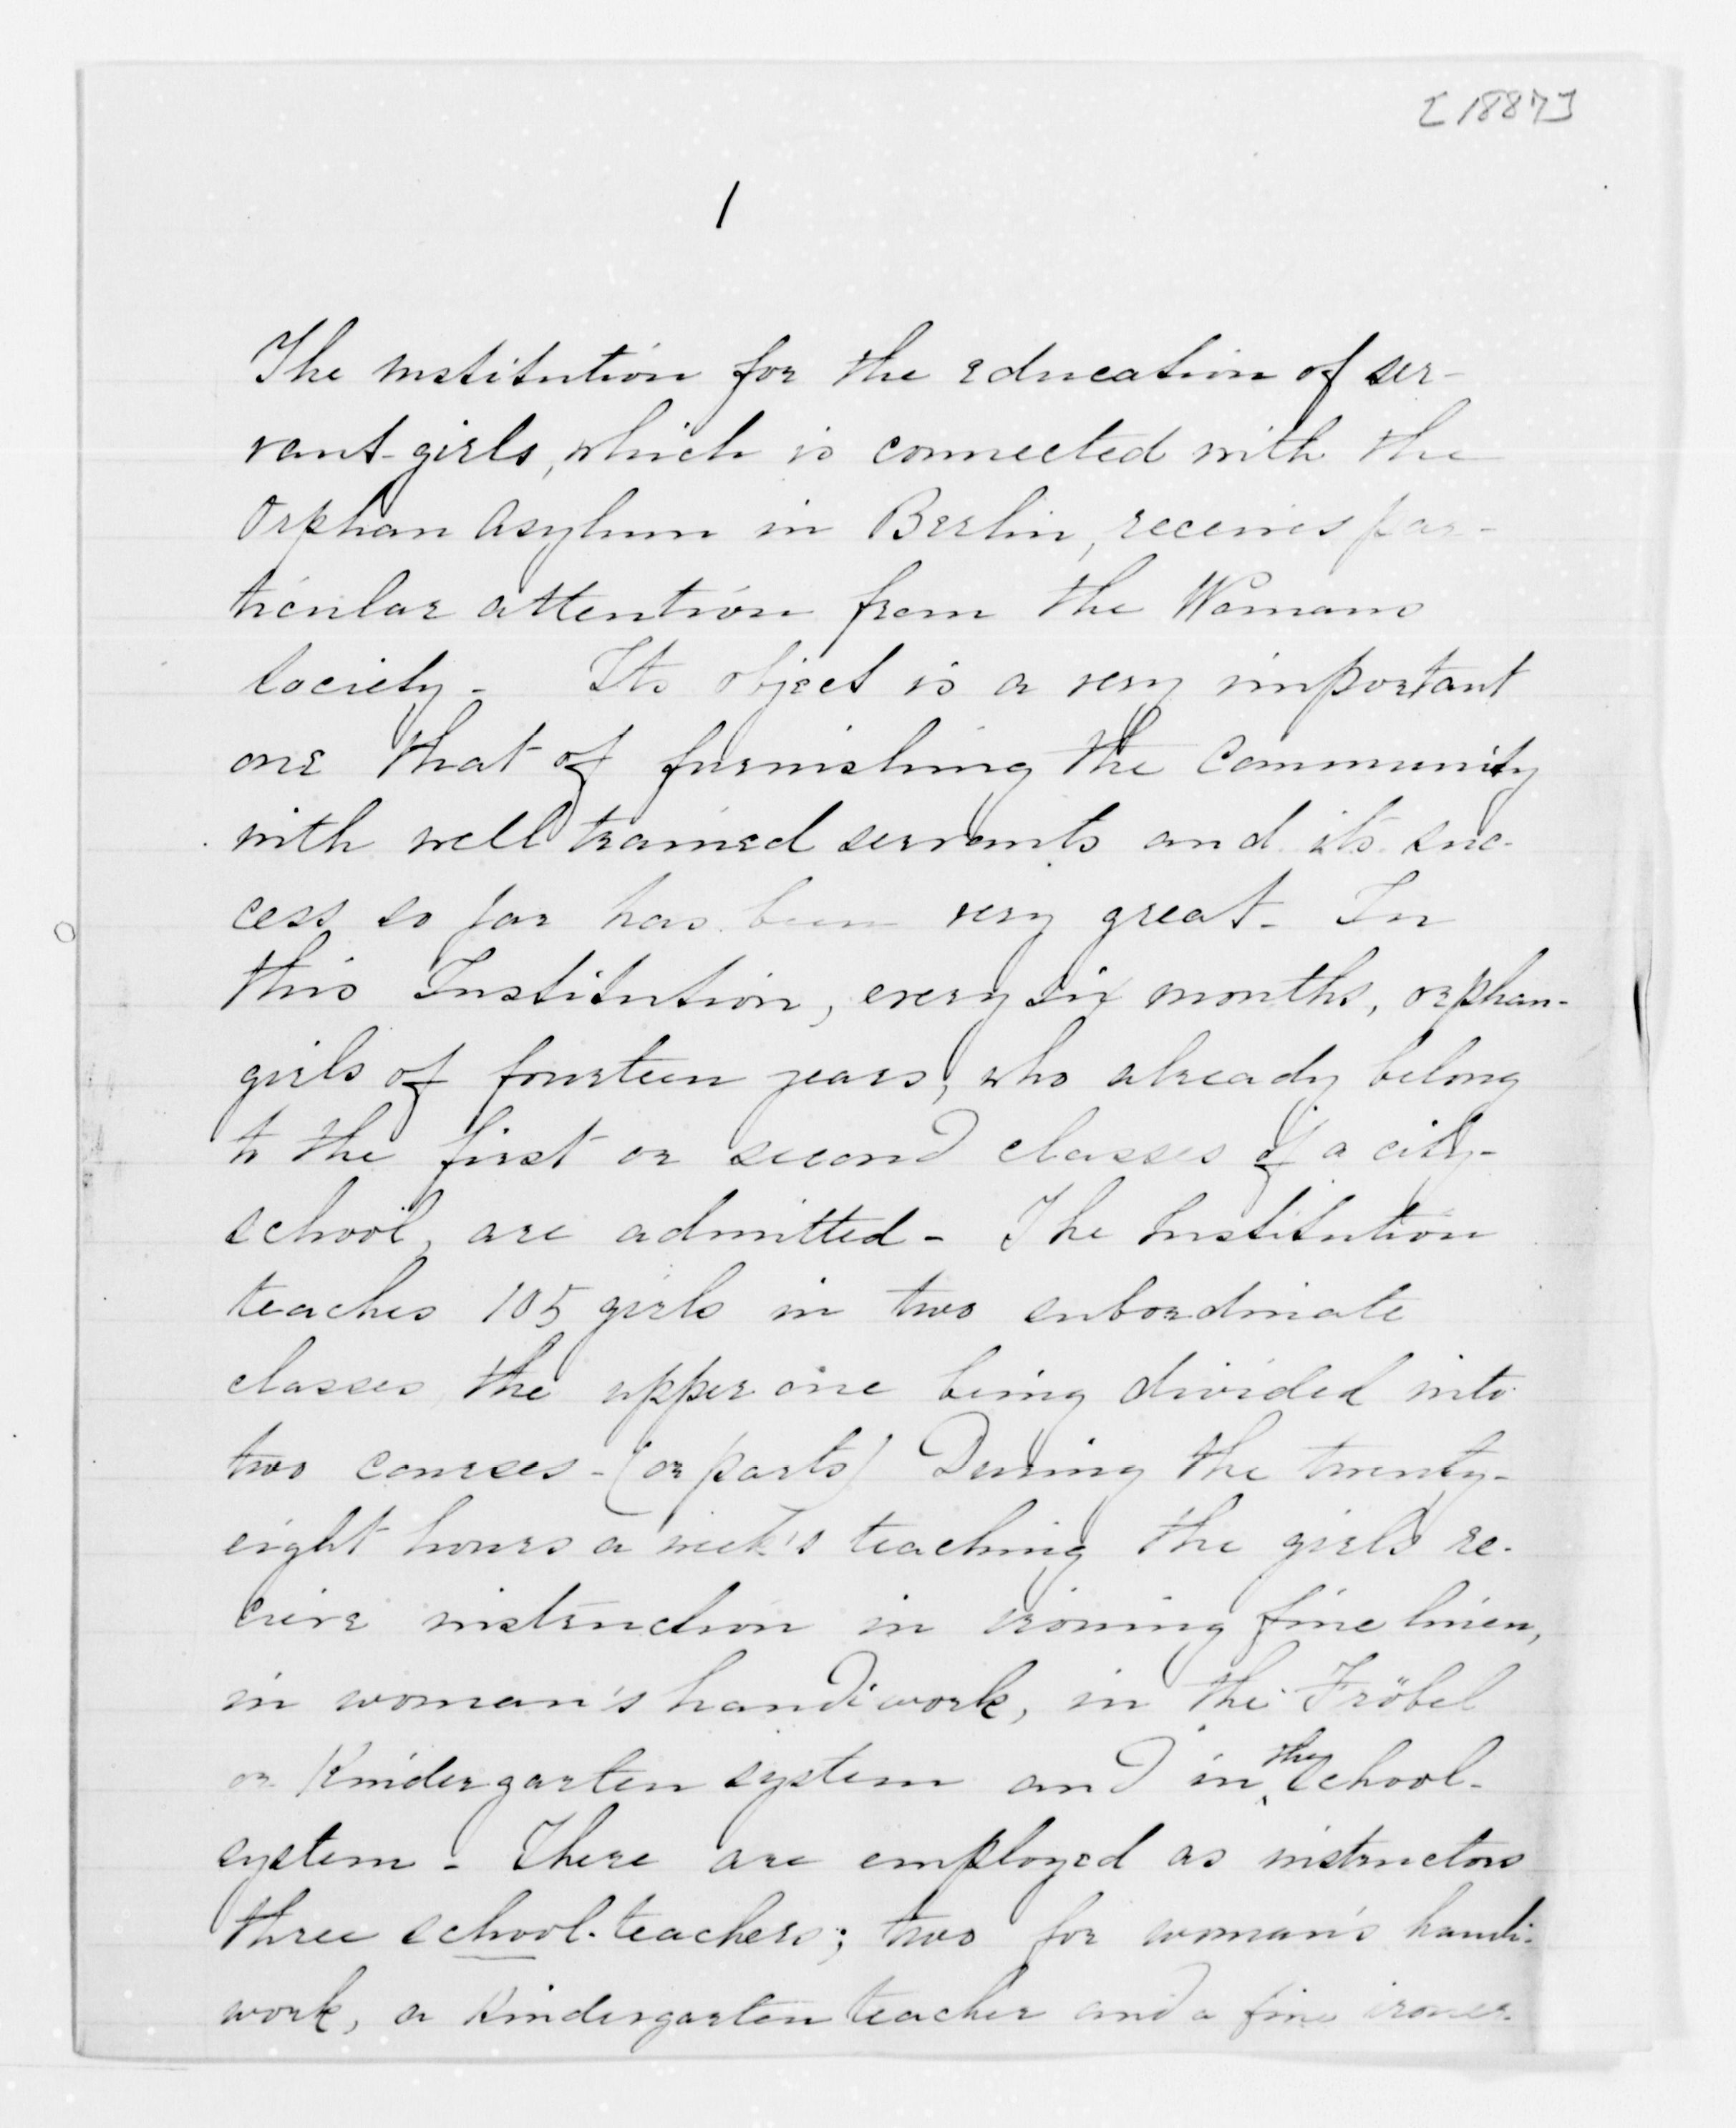 [1887]
1
The Institution for the education of ser-
vant-girls, which is connected with the
Orphan Asylum in Berlin, receives par-
ticular attention from the Womans
Society - Its object is a very important
one that of furnishing the Community
with well trained servants and its suc-
cess so far has been very great - In
this Institution, every six months, orphan-
girls of fourteen years, who already belong
to the first or second classes of a city-
school, are admitted - The Institution
teaches 105 girls in two subordinate
classes, the upper one being divided into
two courses - (or parts) During the twenty-
eight hours a week's teaching the girls re-
ceive instruction in ironing fine linen,
in woman's handiwork, in the Fröbel
or Kindergarten system and in the school-
system - There are employed as instructors
three school-teachers; two for woman's handi-
work, a Kindergarten teacher and a fine ironer.